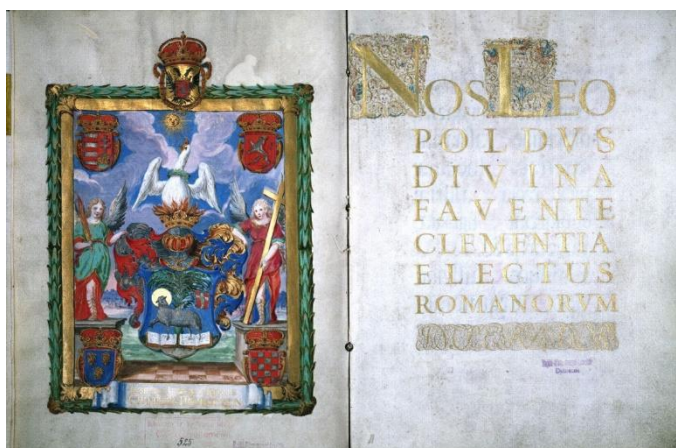 NOS LEO
POLDVS
DIVINA
FAVENTE
CLEMENTIA
ELECTUS
ROMANORVM
525